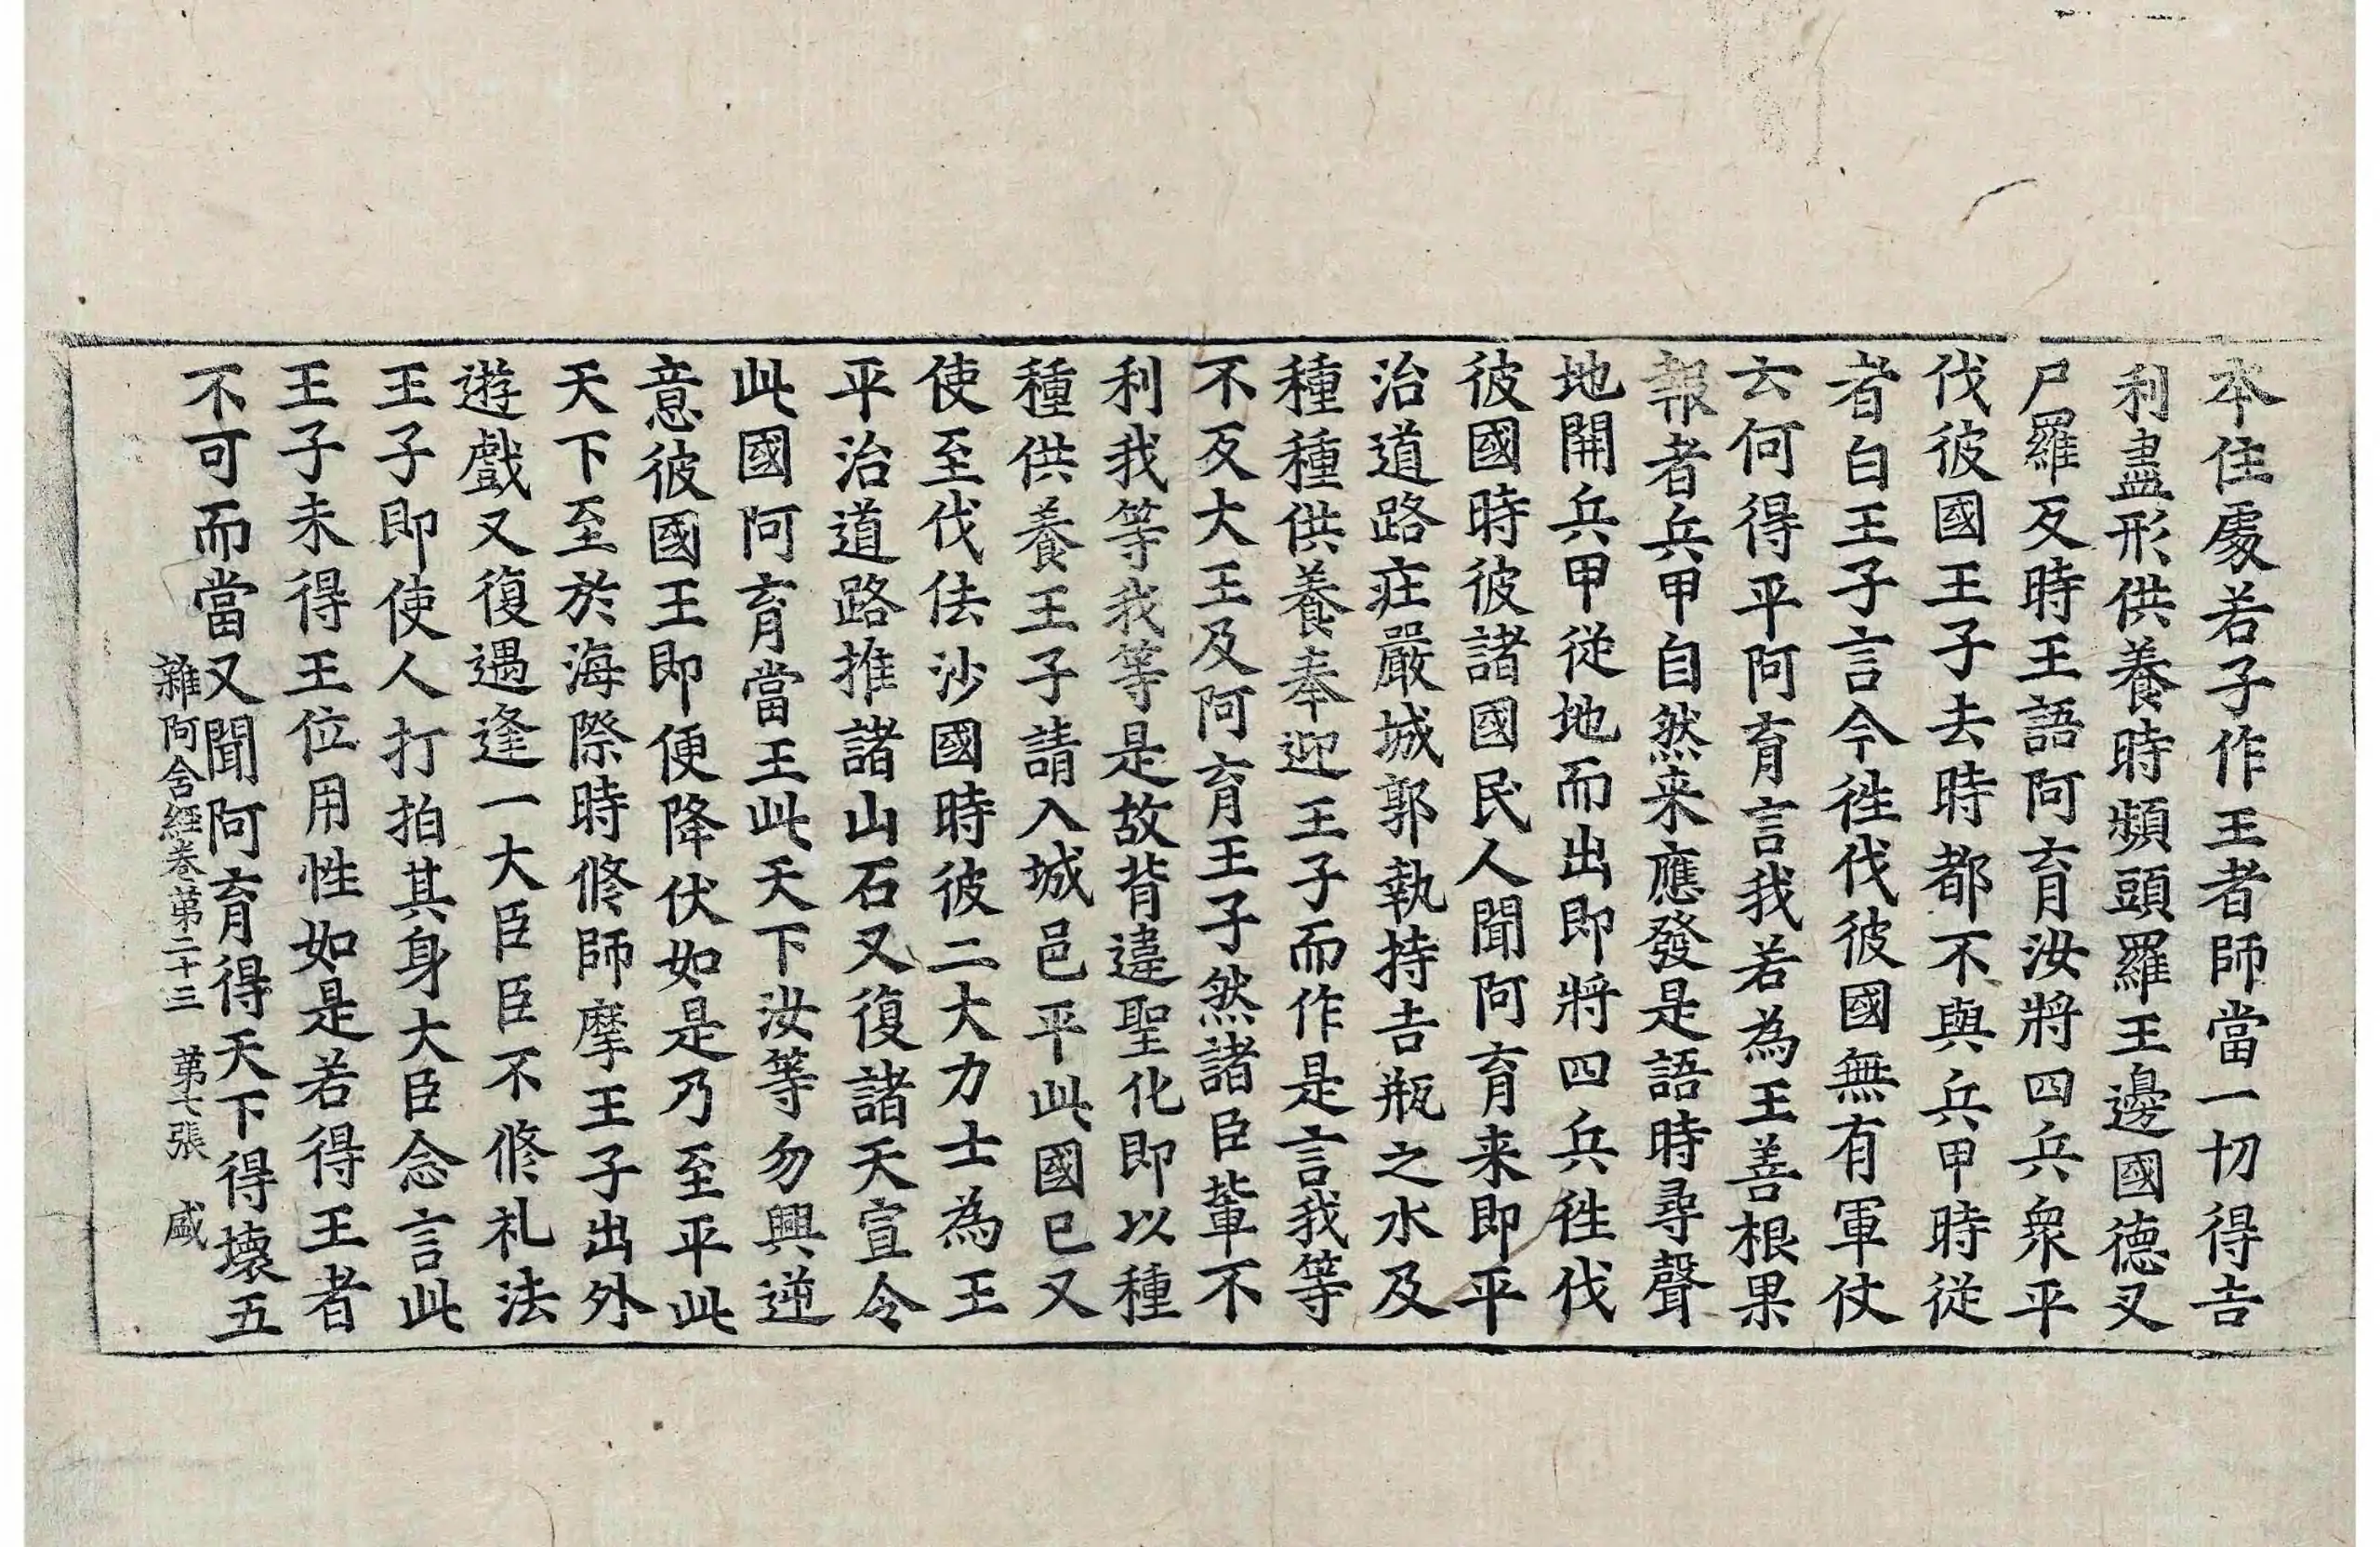 本住處若子作王者師當一切得吉
利盡形供養時頻頭羅王邊國德叉
尸羅反時王語阿育汝將四兵衆平
伐彼國王子去時都不與兵甲時從
者白王子言今徃伐彼國無有軍仗
云何得平阿育言我若為王善根果
報者兵甲自然来應發是語時尋聲
地開兵甲從地而出即將四兵徃伐
彼國時彼諸國民人聞阿育来即平
治道路莊嚴城郭執持吉瓶之水及
種種供養奉迎王子而作是言我等
不反大王及阿育王子然諸臣輩不
利我等我等是故背違聖化即以種
種供養王子請入城邑平此國已又
使至伐佉沙國時彼二大力士為王
平治道路推諸山石又復諸天宣令
此國阿育當王此天下汝等勿興逆
意彼國王即便降伏如是乃至平此
天下至於海際時修師摩王子出外
遊戲又復遇逢一大臣臣不修礼法
王子即使人打拍其身大臣念言此
王子未得王位用性如是若得王者
不可而當又聞阿育得天下得壞五
雜阿含經卷第二十三　第七張　盛